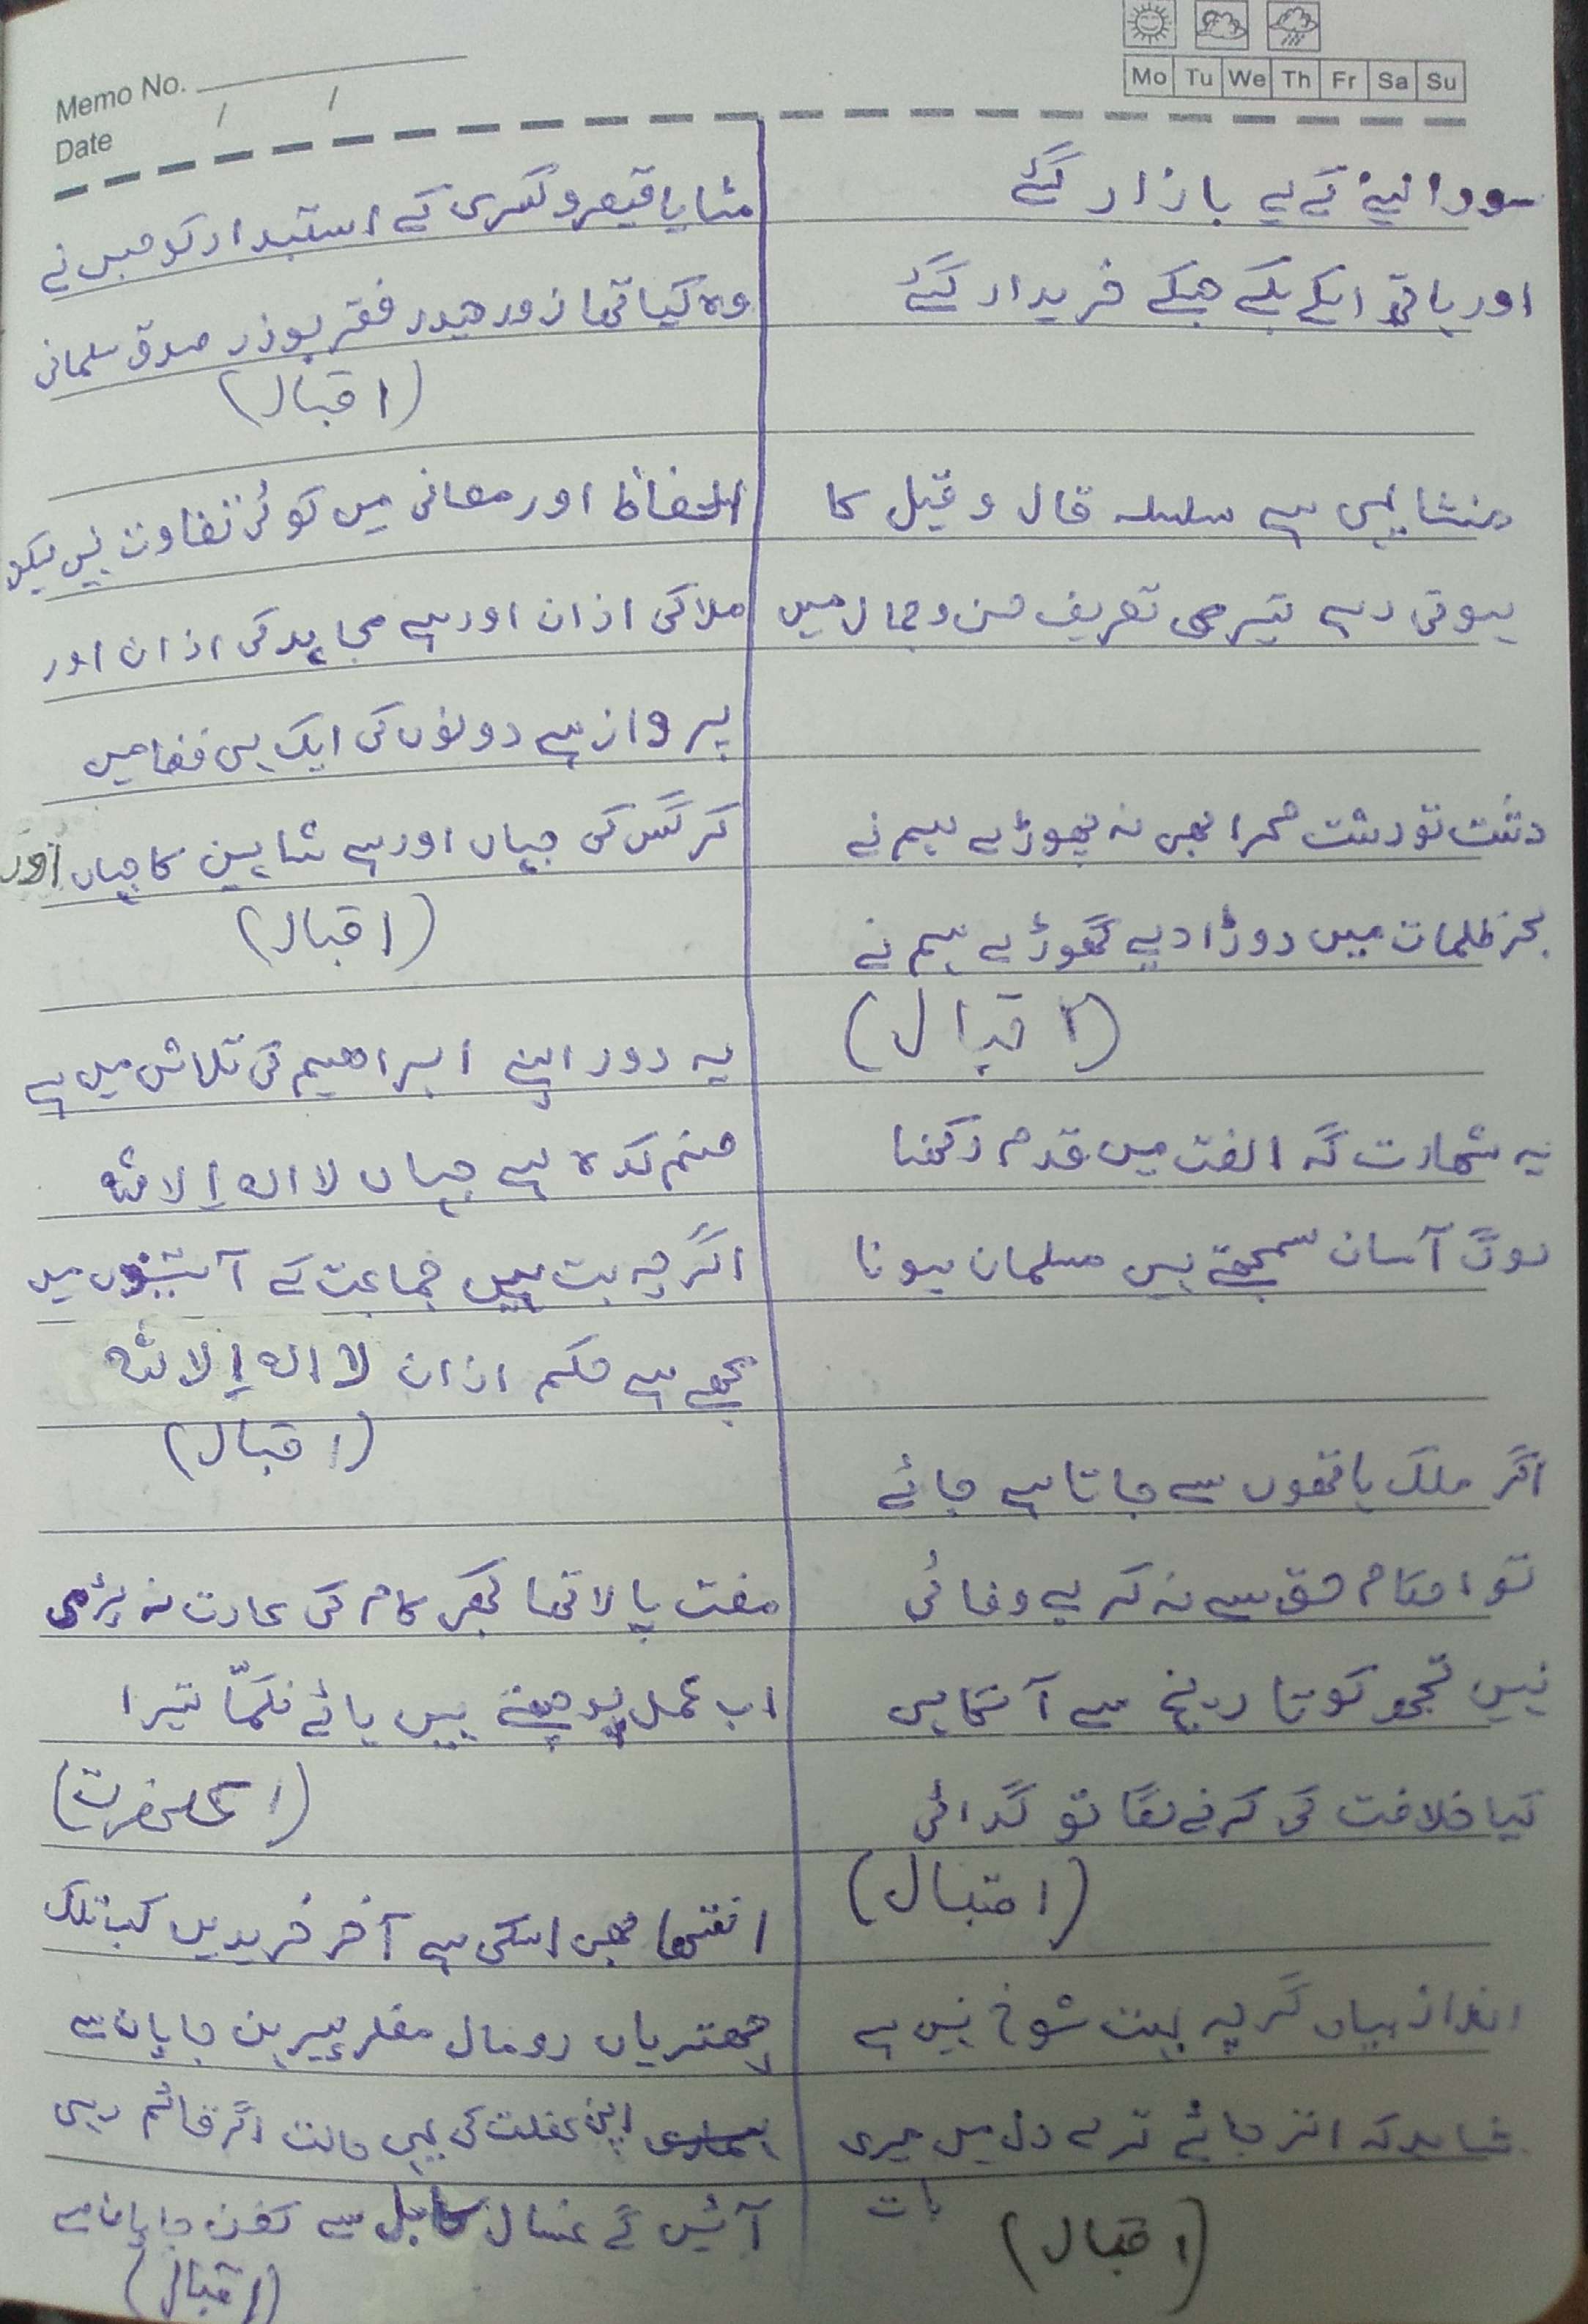 Memo No.
Date / /
Mo Tu We Th Fr Sa Su
سودا لینے کے لیے بازار گئے
اور باقی ایکے بکے ھیکے خریدار گئے
منشا یہی ہے سلسلہ قال و قیل کا
ہوتی رہے تیری تعریف حسن و جمال میں
دشت تو دشت صحرا بھی نہ چھوڑے ہم نے
بحر ظلمات میں دوڑا دیے گھوڑے ہم نے
(اقبال)
یہ شھادت گہ الفت میں قدم رکھنا
لوگ آسان سمجھتے ہیں مسلمان ہونا
اگر ملک ہاتھوں سے جاتا ہے جائے
تو احکام حق سے نہ کر بے وفائی
نہیں تجھ کو تاریخ سے آگاہی
کیا خلافت کی کرنے لگا تو گدائی
(اقبال)
انداز بیاں گرچہ بہت شوخ نہیں ہے
شاید کہ اتر جائے ترے دل میں میری
بات
(اقبال)
مٹایا قیصر و کسری کے استبداد کو جس نے
وہ کیا تھا زور حیدر فقر بوذر صدق سلمانی
(اقبال)
الفاظ اور معانی میں کوئی تفاوت نہیں لیکن
ملا کی اذان اور ہے مجاہد کی اذان اور
پرواز ہے دونوں کی ایک ہی فضا میں
کرگس کی جہاں اور ہے شاہین کا جہاں اور
(اقبال)
یہ دور اپنے ابراھیم کی تلاش میں ہے
صنم کدہ ہے جہاں لا الہ إلا اللہ
اگرچہ بت ہیں جماعت کے آستینوں میں
مجھے ہے حکم اذان لا الہ إلا اللہ
(اقبال)
مفت پالا تھا کبھی کام کی عادت نہ پڑی
اب عمل پوچھتے ہیں ہائے نکمّا تیرا
(اعلحضرت)
انتھا بھی اسکی ہے آخر خریدیں کب تلک
چھتریاں رومال مفلر پیرہن جاپان سے
اپنی غفلت کی یہی حالت اگر قائم رہی
آئیں گے غسال کابل سے کفن جاپان سے
(اقبال)